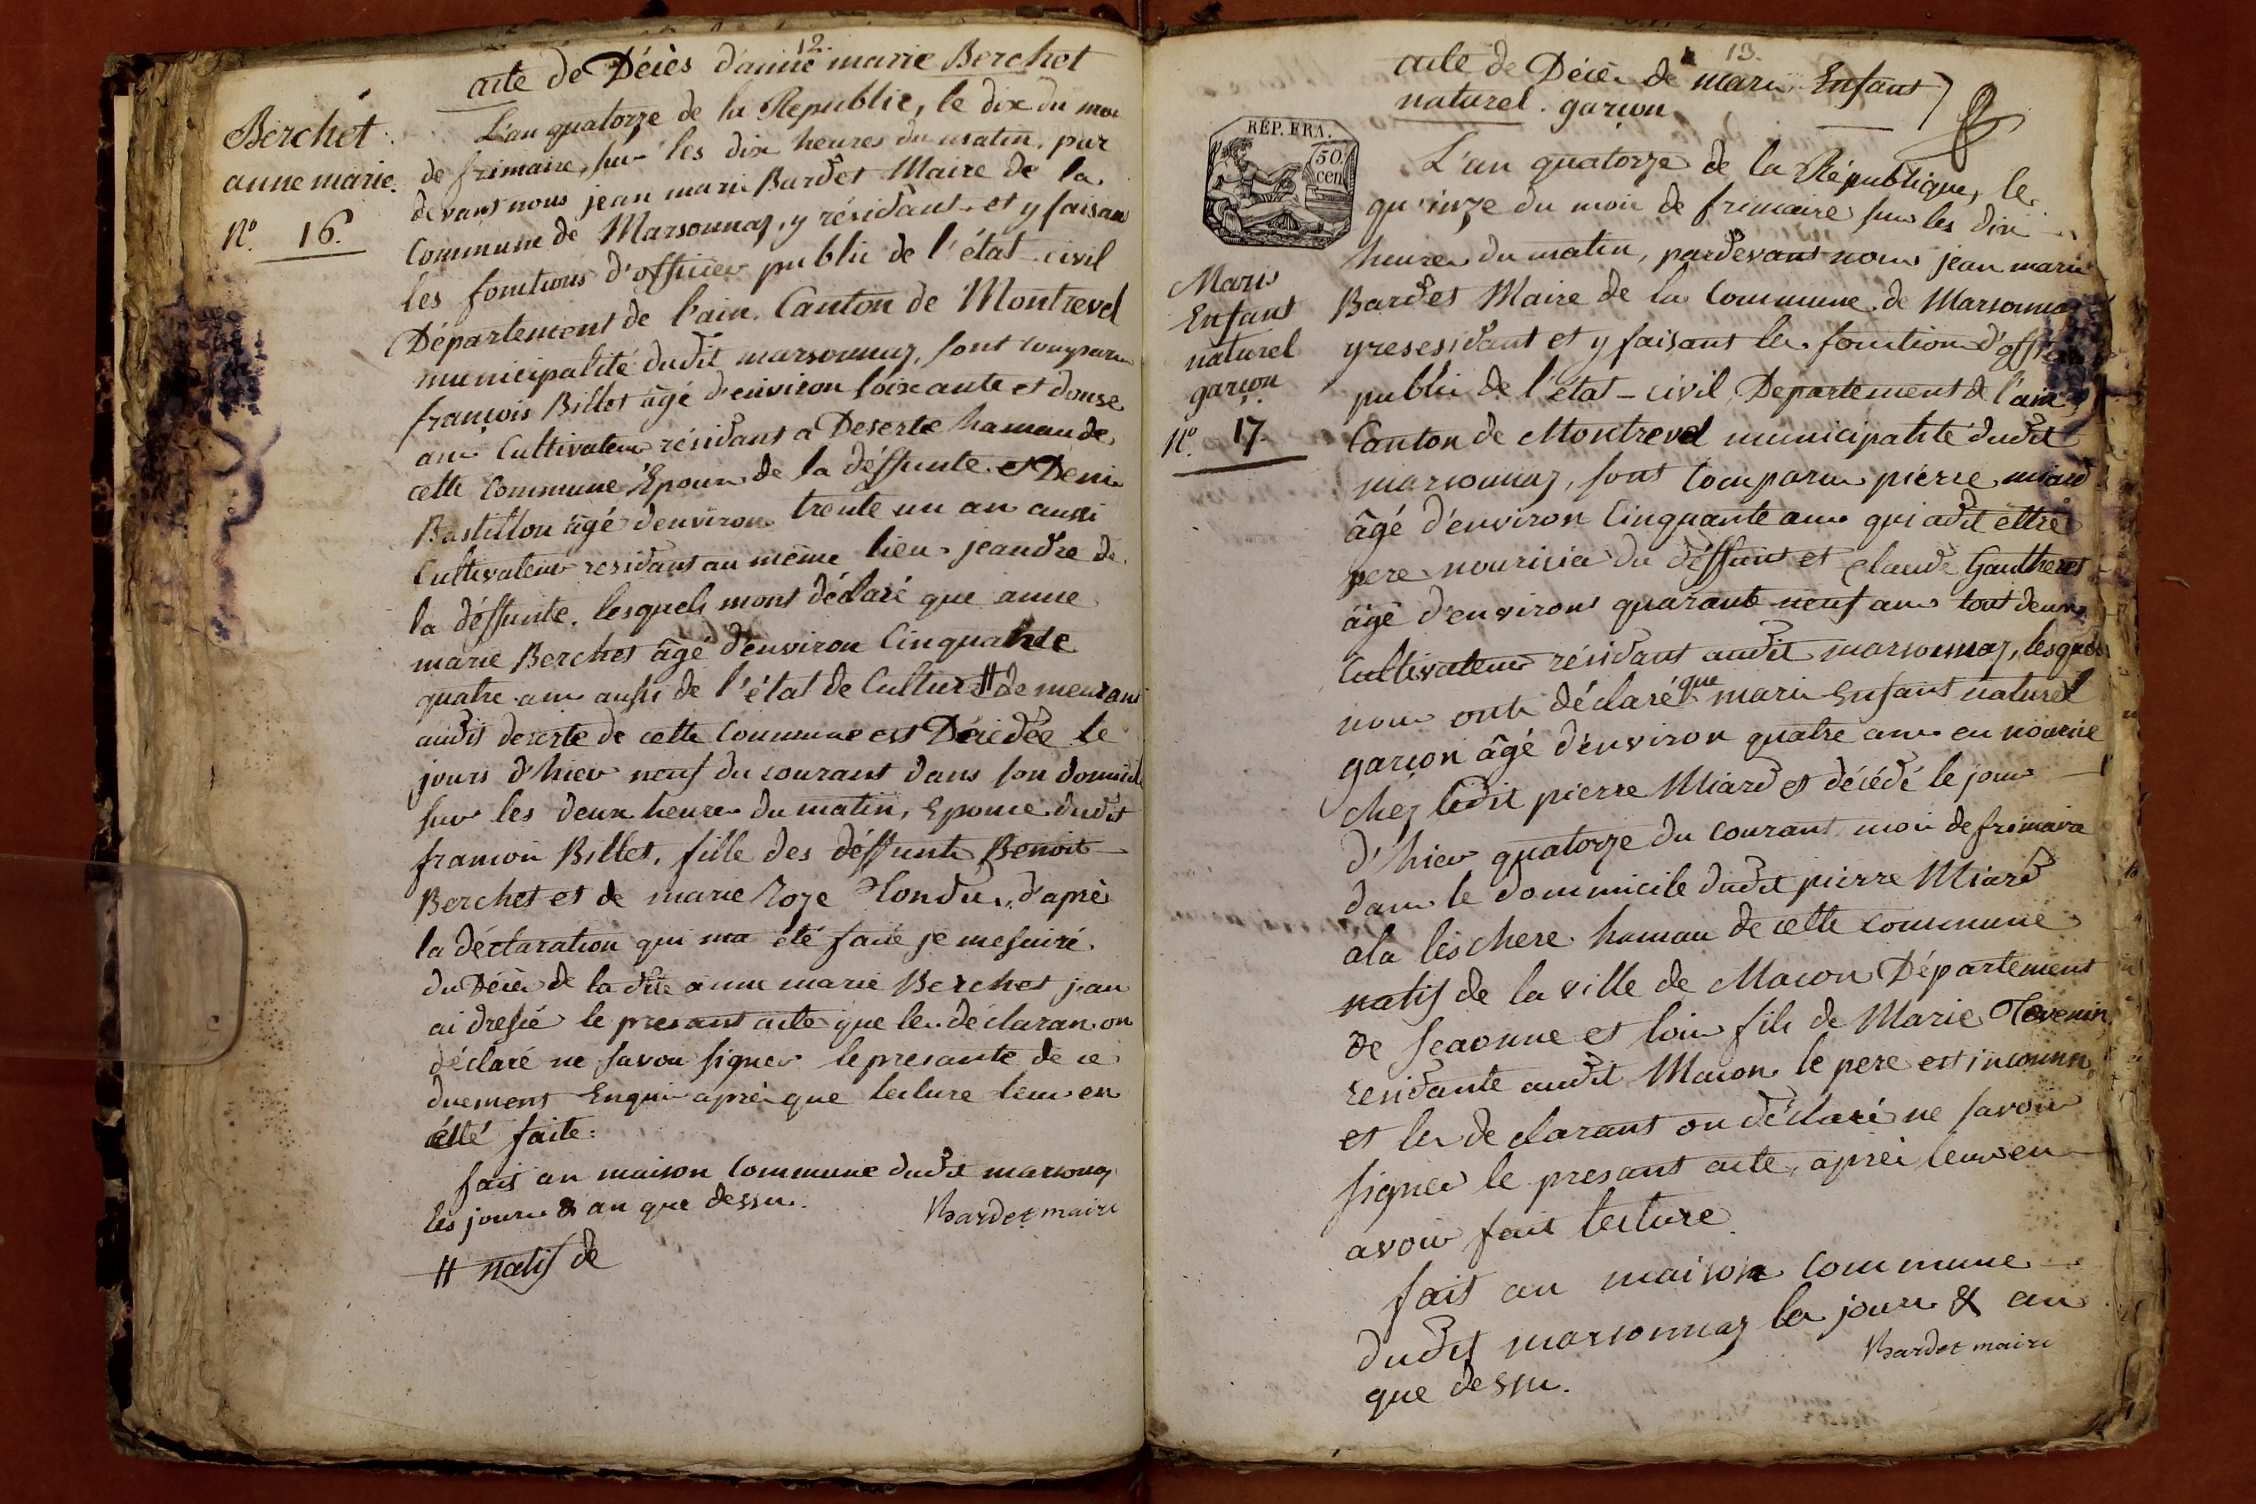 12.
acte de Décès d'anne marie Berchet
Berchet
anne marie.
N.° 16.
L'an quatorze de la Republic, le dix du moi
de frimaire, sur les dix heures du matin, par
devant nous jean marie Bardet Maire de la
Commune de Marsonnaz, y résidant et y faisan
les fonctions d'officier public de l'état civil
Département de l'ain, Canton de Montrevel
municipalité dudit marsonnaz, sont comparu
françois Billet âgé d'environ soixcante et douse
ans Cultivateur résidant a Deserte hamau de
cette Commune Epoux de la déffunte et Deni
Bastillon âgé d'environ trente un an aussi
Cultivateur residant au même lieu, jeandre de
la déffunte, lesquels mont déclaré que anne
marie Berchet âgé d'environ Cinquante
quatre ans aussi de l'état de Cultur # demeurant
audit deserte de cette Commune est Décédée le
jours d'hier neuf du courant dans son domicile
sur les deux heures du matin, Epouse dudit
françois Billet, fille des déffunts Benoit
Berchet et de marie Roze Tondu, d'après
la déclaration qui ma été faite je me suiré
du Décès de la dite anne marie Berchet j'an
ai dressé le presant acte que les déclaran on
déclaré ne savoir signer le presante de ce
duement Enquis après que lecture leur en
étté faite.
fait an maison Commune dudit marsonaz
les jours & an que dessu.
Bardet maire
# natif de
13.
acte de Décès de marie Enfant
naturel. garçon
RÉP. FRA.
50
cen
Marie
Enfant
naturel
garçon.
N.° 17.
L'an quatorze de la République, le
quinze du mois de frimaire sur les dix
heures du matin, pardevant nous jean marie
Bardet Maire de la Commune de Marsonna
y resesidant et y faisant les fonction d'offi
public de l'état-civil, Departement de l'ain,
Canton de Montrevel municipalité dudit
marsonnaz, sont Comparu pierre miard
âgé d'environ Cinquante ans qui adit ettre
pere nouricié du déffunt et claude Gautheret
âgé d'environs quarante neuf ans tout deux
Cultivateur résidant audit marsonnaz, lesquels
nous onts déclaré que marie Enfant naturel
garçon âgé d'environ quatre ans en nourice
chez ledit pierre Miard et décédé le jour
d'hier quatorze du courant mois de frimaire
dans le dommicile dudit pierre Miard
ala leschere hamau de cette commune
natif de la ville de Macon Département
de seaonne et loire fils de Marie Tevenin
residante audit Macon le pere est inconnu,
et les declarant on déclaré ne savoir
signer le presant acte, après leur en
avoir fait lecture.
fait an maison commune
dudit marsonnaz les jours & an
que dessu.
Bardet maire